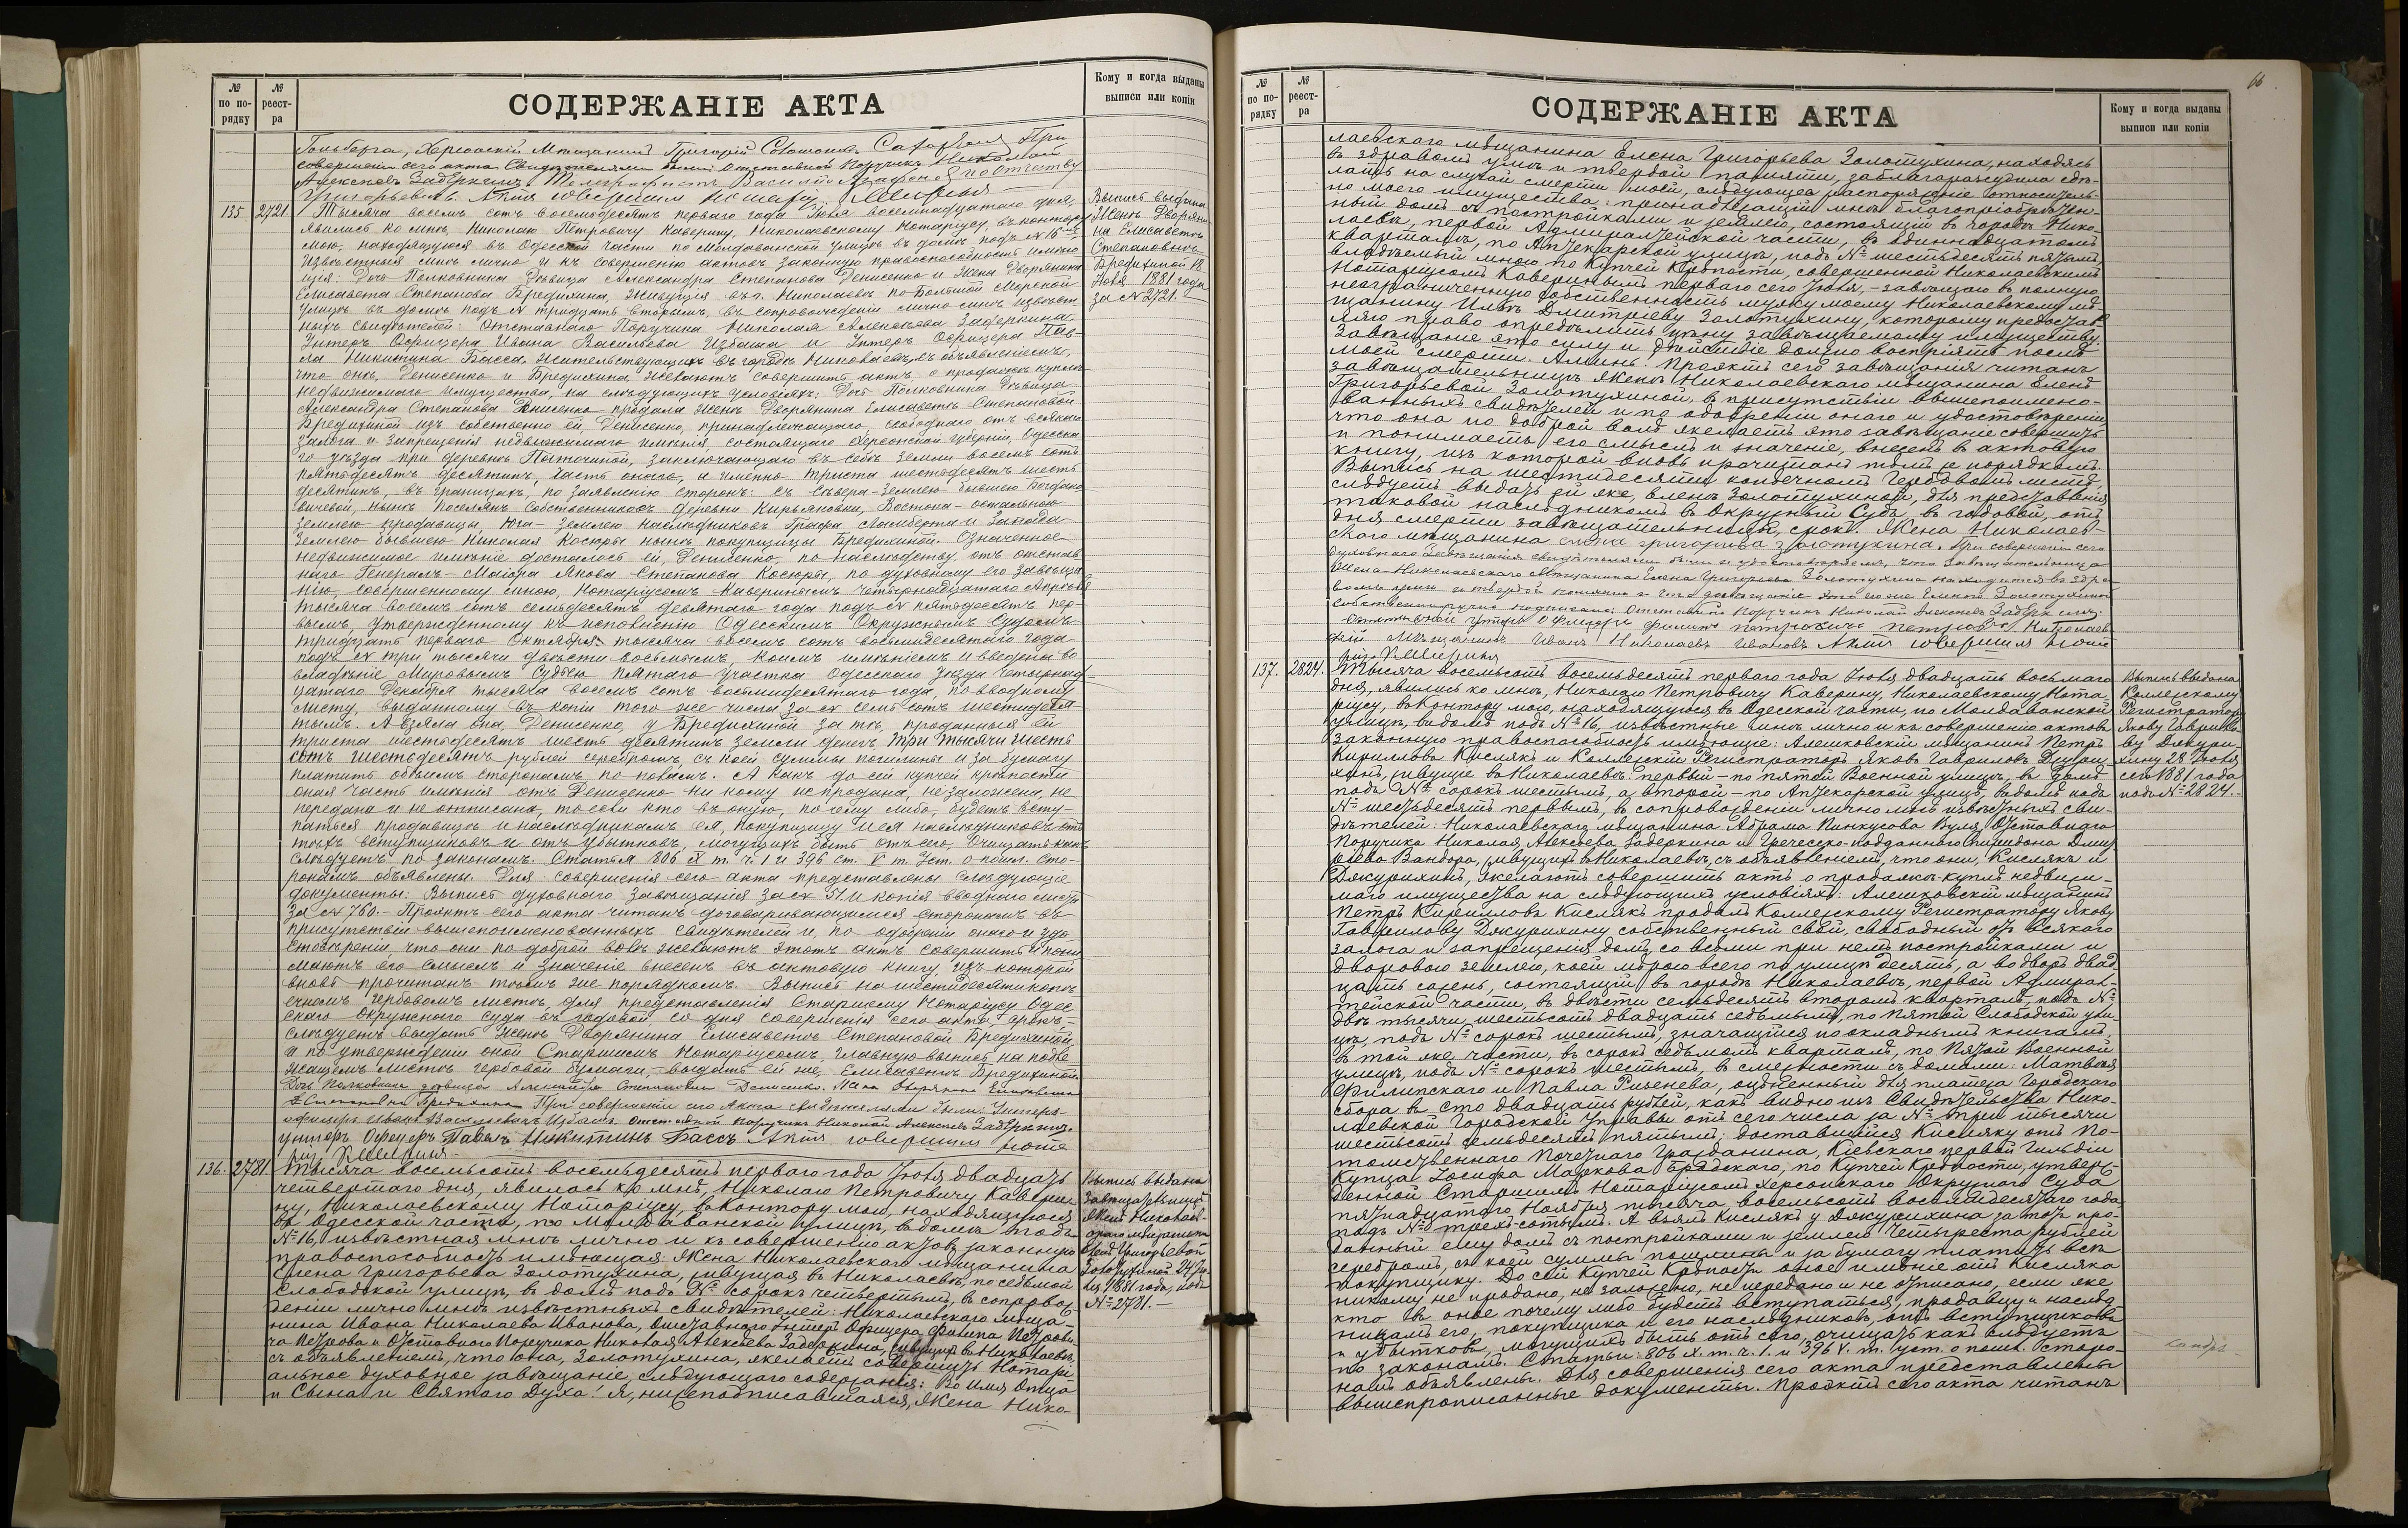 № по по-рядку
№ реест-ра
СОДЕРЖАНІЕ АКТА
Кому и когда выданы выписи или копіи
Гольберга, Херсонскій Мѣщанинъ Григорій При
совершеніи сего акта Свидѣтелями были: Отставной Поручикъ Николай
Алексѣевъ Задеркинъ, Телеграфистъ Василій по отчеству
Григорьевъ. Актъ совершилъ Нотаріусъ
135 2721. Тысяча восемь сотъ восемьдесятъ перваго года Іюля восемнадцатаго дня,
явились ко мнѣ, Николаю Петровичу Каверину, Николаевскому Нотаріусу, въ контору
мою, находящуюся въ Одесской части по Молдаванской улицѣ въ домѣ подъ № 16мъ
извѣстныя мнѣ лично и къ совершенію актовъ законную правоспособность имѣю
щія: Дочь Полковника Дѣвица Александра Степанова Денисенко и Жена Дворянина
Елисавета Степанова Бредихина, живущія въ г. Николаевѣ по Большой Морской
улицѣ въ домѣ подъ № тридцать вторымъ, въ сопровожденіи лично мнѣ извѣст
ныхъ свидѣтелей: Отставнаго Поручика Николая Алексѣева Задеркина
Унтеръ Офицера Ивана Васильева Избаша и Унтеръ Офицера Пав-
ла Никитина Басса жительствующихъ въ городѣ Николаевѣ, съ объявленіемъ,
что онѣ, Денисенко и Бредихина, желаютъ совершить актъ, о продажѣ куплѣ
недвижимаго имущества, на слѣдующихъ условіяхъ: Дочь Полковника Дѣвица
Александра Степанова Денисенко продала женѣ Дворянина Елисаветѣ Степановой
Бредихиной изъ собственно ей, Денисенко, принадлежащаго, свободнаго отъ всякаго
залога и запрещенія недвижимаго имѣнія, состоящаго Херсонской губерніи, Одесска
го уѣзда при деревнѣ заключающаго въ себѣ земли восемь сотъ
пятьдесятъ десятинъ, часть онаго, и именно триста шестьдесятъ шесть
десятинъ, въ границахъ, по заявленію сторонъ: съ Сѣвера - Землею бывшею Богдано
вичевой, нынѣ Поселянъ Собственниковъ деревни Кирьяновки, Востока - остальною
землею продавицы, Юга - Землею Наслѣдниковъ Графа Ламберта и Запада
Землею бывшею Николая Косюры нынѣ покупщицы Бредихиной. Означенное
недвижимое имѣніе досталось ей, Денисенко, по наслѣдству отъ отстав
наго Генералъ-Маіора Якова Степанова Косюры, по духовному его завѣща
нію, совершенному мною, Нотаріусомъ Каверинымъ Четырнадцатаго Апрѣля
тысяча восемь сотъ семьдесятъ девятаго года подъ № пятьдесятъ пер-
вымъ, утвержденному къ исполненію Одесскимъ Окружнымъ Судомъ
тридцать перваго Октября тысяча восемь сотъ восьмидесятаго года
подъ № три тысячи двѣсти восьмымъ, коимъ имѣніемъ и введена во
владѣніе Мировымъ Судьею Пятаго Участка Одесскаго уѣзда Четырнад
цатаго Декабря тысяча восемь сотъ восьмидесятаго года, по вводному
листу, выданному въ копіи того же числа за № семь сотъ шестидеся
тымъ. А взяла она, Денисенко, у Бредихиной за тѣ, проданныя ей
триста шестьдесятъ шесть десятинъ земли денегъ три тысячи шесть
сотъ шестьдесятъ рублей серебромъ, съ коей суммы пошлины и за бумагу
платить обѣимъ сторонамъ по поламъ. А какъ до сей купчей крѣпости
оная часть имѣнія отъ Денисенко ни кому не продана, не заложена, не
передана и не отписана, то если кто въ оную, почему либо, будетъ всту-
паться продавицѣ и наслѣдникамъ ея, покупщицу и ея наслѣдниковъ отъ
тѣхъ вступщиковъ и отъ убытковъ, могущихъ быть отъ сего, Очищать какъ
слѣдуетъ по законамъ. Статьи 806 X т. ч. 1 и 396 ст. V т. Уст. о пошл. Сто-
ронамъ объявлены. Для совершенія сего акта представлены слѣдующіе
документы: Выпись духовнаго Завѣщанія за № 51 и копія вводнаго листа
за № 760. - Проэктъ сего акта читанъ договаривающимся сторонамъ въ
присутствіи вышепоименованныхъ свидѣтелей и, по одобреніи онаго и удо
стовѣреніи что они по доброй волѣ желаютъ этотъ актъ совершить и пони
маютъ его смыслъ и значеніе внесенъ въ актовую книгу, изъ которой
вновь прочитанъ тѣмъ же порядкомъ. Выпись на шестидесяти копѣ
ечномъ гербовомъ листѣ, для представленія Старшему Нотаріусу Одес
скаго Окружнаго суда въ годовой, со дня совершенія сего акта, срокъ,-
слѣдуетъ выдать женѣ Дворянина Елисаветѣ Степановой Бредихиной,
а по утвержденіи оной Старшимъ Нотаріусомъ, главную выпись на подле
жащемъ листѣ гербовой бумаги, выдать ей же, Елисаветѣ Бредихиной
Дочь Полковника дѣвица Александра Степановна Денисенко. Жена Дворянина Елисавета
Степановна Бредихина При совершеніи сего Акта свидѣтелями были: Унтеръ-
офицеръ Иванъ Васильевичъ Избашъ Отставной Поручикъ Николай Алексѣевъ Задеркинъ.
унтеръ Офицеръ Павелъ Никитинъ Бассъ Актъ совершилъ Нота
ріусъ
Выпись выдана
Женѣ Дворяни
на Елисаветѣ
Степановнѣ
Бредихиной 18
Іюля 1881 года
за № 2721.
136. 2781. Тысяча восемьсотъ восемьдесятъ перваго года Іюля двадцать
четвертаго дня, явилась ко мнѣ, Николаю Петровичу Кавери-
ну, Николаевскому Нотаріусу, въ контору мою, находящуюся
въ Одесской части, по Молдаванской улицѣ, въ домѣ подъ
№ 16, извѣстная мнѣ лично и къ совершенію актовъ законную
правоспособность имѣющая: Жена Николаевскаго мѣщанина
Елена Григорьева Золотухина, живущая въ Николаевѣ, по седьмой
Слободской улицѣ, въ домѣ подъ № сорокъ четвертымъ, въ сопрово-
жденіи лично мнѣ извѣстныхъ свидѣтелей: Николаевскаго мѣща-
нина Ивана Николаева Иванова, Отставнаго Унтеръ Офицера Филипа Петрови
ча Петрова и Отставнаго Поручика Николая Алексѣева Задеркина, живущихъ въ Николаевѣ,
съ объявленіемъ, что она, Золотухина, желаетъ совершить Нотарі-
альное духовное завѣщаніе, слѣдующаго содержанія: Во Имя Отца
и Сына и Святаго Духа! Я, нижеподписавшаяся, Жена Нико-
Выпись выдана
Завѣщательницѣ
Женѣ Николаев-
скаго мѣщанина
Еленѣ Григорьевой
Золотухиной 24 Ію-
ля 1881 года, подъ
№ 2781. —
66.
№ по по-рядку
№ реест-ра
СОДЕРЖАНІЕ АКТА
Кому и когда выданы выписи или копіи
лаевскаго мѣщанина Елена Григорьева Золотухина, находясь
въ здравомъ умѣ и твердой памяти, заблагоразсудила сдѣ-
лать на случай смерти моей, слѣдующее распоряженіе относитель-
но моего имущества: принадлежащій мнѣ благопріобрѣтен-
ный домъ съ постройками и землею, состоящій въ городѣ Нико-
лаевѣ, первой Адмиралтейской части, въ одиннадцатомъ
кварталѣ, по Аптекарской улицѣ, подъ № шестьдесятъ пятымъ,
владѣемый мною по Купчей Крѣпости, совершенной Николаевскимъ
Нотаріусомъ Каверинымъ перваго сего Іюля, - завѣщаю въ полную
неограниченную собственность мужу моему Николаевскому мѣ-
щанину Ильѣ Дмитріеву Золотухину, которому предостав-
ляю право опредѣлить цѣну завѣщаемому имуществу.
Завѣщаніе это силу и дѣйствіе должно воспріять послѣ
моей смерти. Аминь. Проэктъ сего завѣщанія читанъ
завѣщательницѣ Женѣ Николаевскаго мѣщанина Еленѣ
Григорьевой Золотухиной, въ присутствіи вышепоимено-
ванныхъ свидѣтелей и по одобреніи онаго и удостовѣреніи,
что она по доброй волѣ желаетъ это завѣщаніе совершить
и понимаетъ его смыслъ и значеніе, внесенъ въ актовую
книгу, изъ которой вновь прочитанъ тѣмъ же порядкомъ.
Выпись на шестидесяти копѣечномъ гербовомъ листѣ,
слѣдуетъ выдать ей же, Еленѣ Золотухиной, для представленія
таковой наслѣдникомъ въ Окружный Судъ, въ годовой, отъ
дня смерти завѣщательницы, срокъ. Жена Николаев-
скаго мѣщанина елена григорива золотухина. При совершеніи сего
духовнаго Завѣщанія свидѣтелями были и удостовѣряемъ, что Завѣщательница
Жена Николаевскаго Мѣщанина Елена Григорьева Золотухина находится въ здра-
вомъ умѣ и твердой памяти и что завѣщаніе это ею же Еленою Золотухиною
собственноручно подписано: Отставной Поручикъ Николай Алексѣевъ Задеркинъ.
отставной унтеръ офицеръ филипъ петровичъ петровъ Николаев
скій Мѣщанинъ Иванъ Николаевъ Ивановъ Актъ совершилъ Нота
ріусъ
137. 2824. Тысяча восемьсотъ восемьдесятъ перваго года Іюля двадцать восьмаго
дня, явились ко мнѣ, Николаю Петровичу Каверину, Николаевскому Нота-
ріусу, въ контору мою, находящуюся въ Одесской части, по Молдаванской
улицѣ, въ домѣ подъ № 16, извѣстные мнѣ лично и къ совершенію актовъ
законную правоспособность имѣющіе: Алешковскій мѣщанинъ Петръ
Кириловъ Кислякъ и Коллежскій Регистраторъ Яковъ Гавриловъ Джури-
хинъ, живущіе въ Николаевѣ: первый - по пятой Военной улицѣ, въ домѣ
подъ № сорокъ шестымъ, а второй - по Аптекарской улицѣ, въ домѣ подъ
№ шестьдесятъ первымъ, въ сопровожденіи лично мнѣ извѣстныхъ сви-
дѣтелей: Николаевскаго мѣщанина Абрама Пинкусова Вуля, Отставнаго
Поручика Николая Алексѣева Задеркина и Греческо-подданнаго Спиридона Дмит
ріева Вандоро, живущихъ въ Николаевѣ, съ объявленіемъ, что они, Кислякъ и
Джурихинъ, желаютъ совершить актъ о продажѣ-куплѣ недвижи-
маго имущества на слѣдующихъ условіяхъ: Алешковскій мѣщанинъ
Петръ Кирилловъ Кислякъ продалъ Коллежскому Регистратору Якову
Гаврилову Джурихину собственный свой, свободный отъ всякаго
залога и запрещенія домъ со всѣми при немъ постройками и
дворовою землею, коей мѣрою всего по улицѣ десять, а во дворъ двад-
цать сажень, состоящій въ городѣ Николаевѣ, первой Адмирал-
тейской части, въ двѣсти семьдесятъ второмъ кварталѣ, подъ №
двѣ тысячи шестьсотъ двадцать седьмымъ, по Пятой Слободской ули-
цѣ, подъ № сорокъ шестымъ, значащійся по окладнымъ книгамъ,
въ той же части, въ сорокъ седьмомъ кварталѣ, по Пятой Военной
улицѣ, подъ № сорокъ шестымъ, въ смежности съ домами: Матвѣя
Филипскаго и Павла Ризенева, оцѣненный для платежа Городскаго
сбора въ сто двадцать рублей, какъ видно изъ Свидѣтельства Нико-
лаевской Городской Управы отъ сего числа за № три тысячи
шестьсотъ семьдесятъ пятымъ; доставшійся Кисляку отъ По-
томственнаго Почетнаго Гражданина, Кіевскаго первой Гильдіи
Купца Іосифа Маркова Бродскаго, по Купчей Крѣпости, утверж-
денной Старшимъ Нотаріусомъ Херсонскаго Окружнаго Суда
пятнадцатаго Ноября тысяча восемьсотъ восьмидесятаго года
подъ № трехъ-сотымъ. А взялъ Кислякъ у Джурихина за тотъ про-
данный ему домъ съ постройками и землею Четыреста рублей
серебромъ, съ коей суммы пошлины и за бумагу платить всѣ
покупщику. До сей Купчей Крѣпости оное имѣніе отъ Кисляка
никому не продано, не заложено, не передано и не отписано, если же
кто въ оное почему либо будетъ вступаться, продавцу и наслѣд-
никамъ его, покупщика и его наслѣдниковъ, отъ вступщиковъ
и убытковъ, могущихъ быть отъ сего, очищать какъ слѣдуетъ
по законамъ. Статьи: 806 X. т. ч. 1. и 396 V. т. Уст. о пошл. сторо-
намъ объявлены. Для совершенія сего акта представлены
вышепрописанные документы. Проэктъ сего акта читанъ
Выпись выдана
Коллежскому
Регистратору
Якову Гаврило-
ву Джури-
хину 28 Іюля
сего 1881 года
подъ № 2824. -